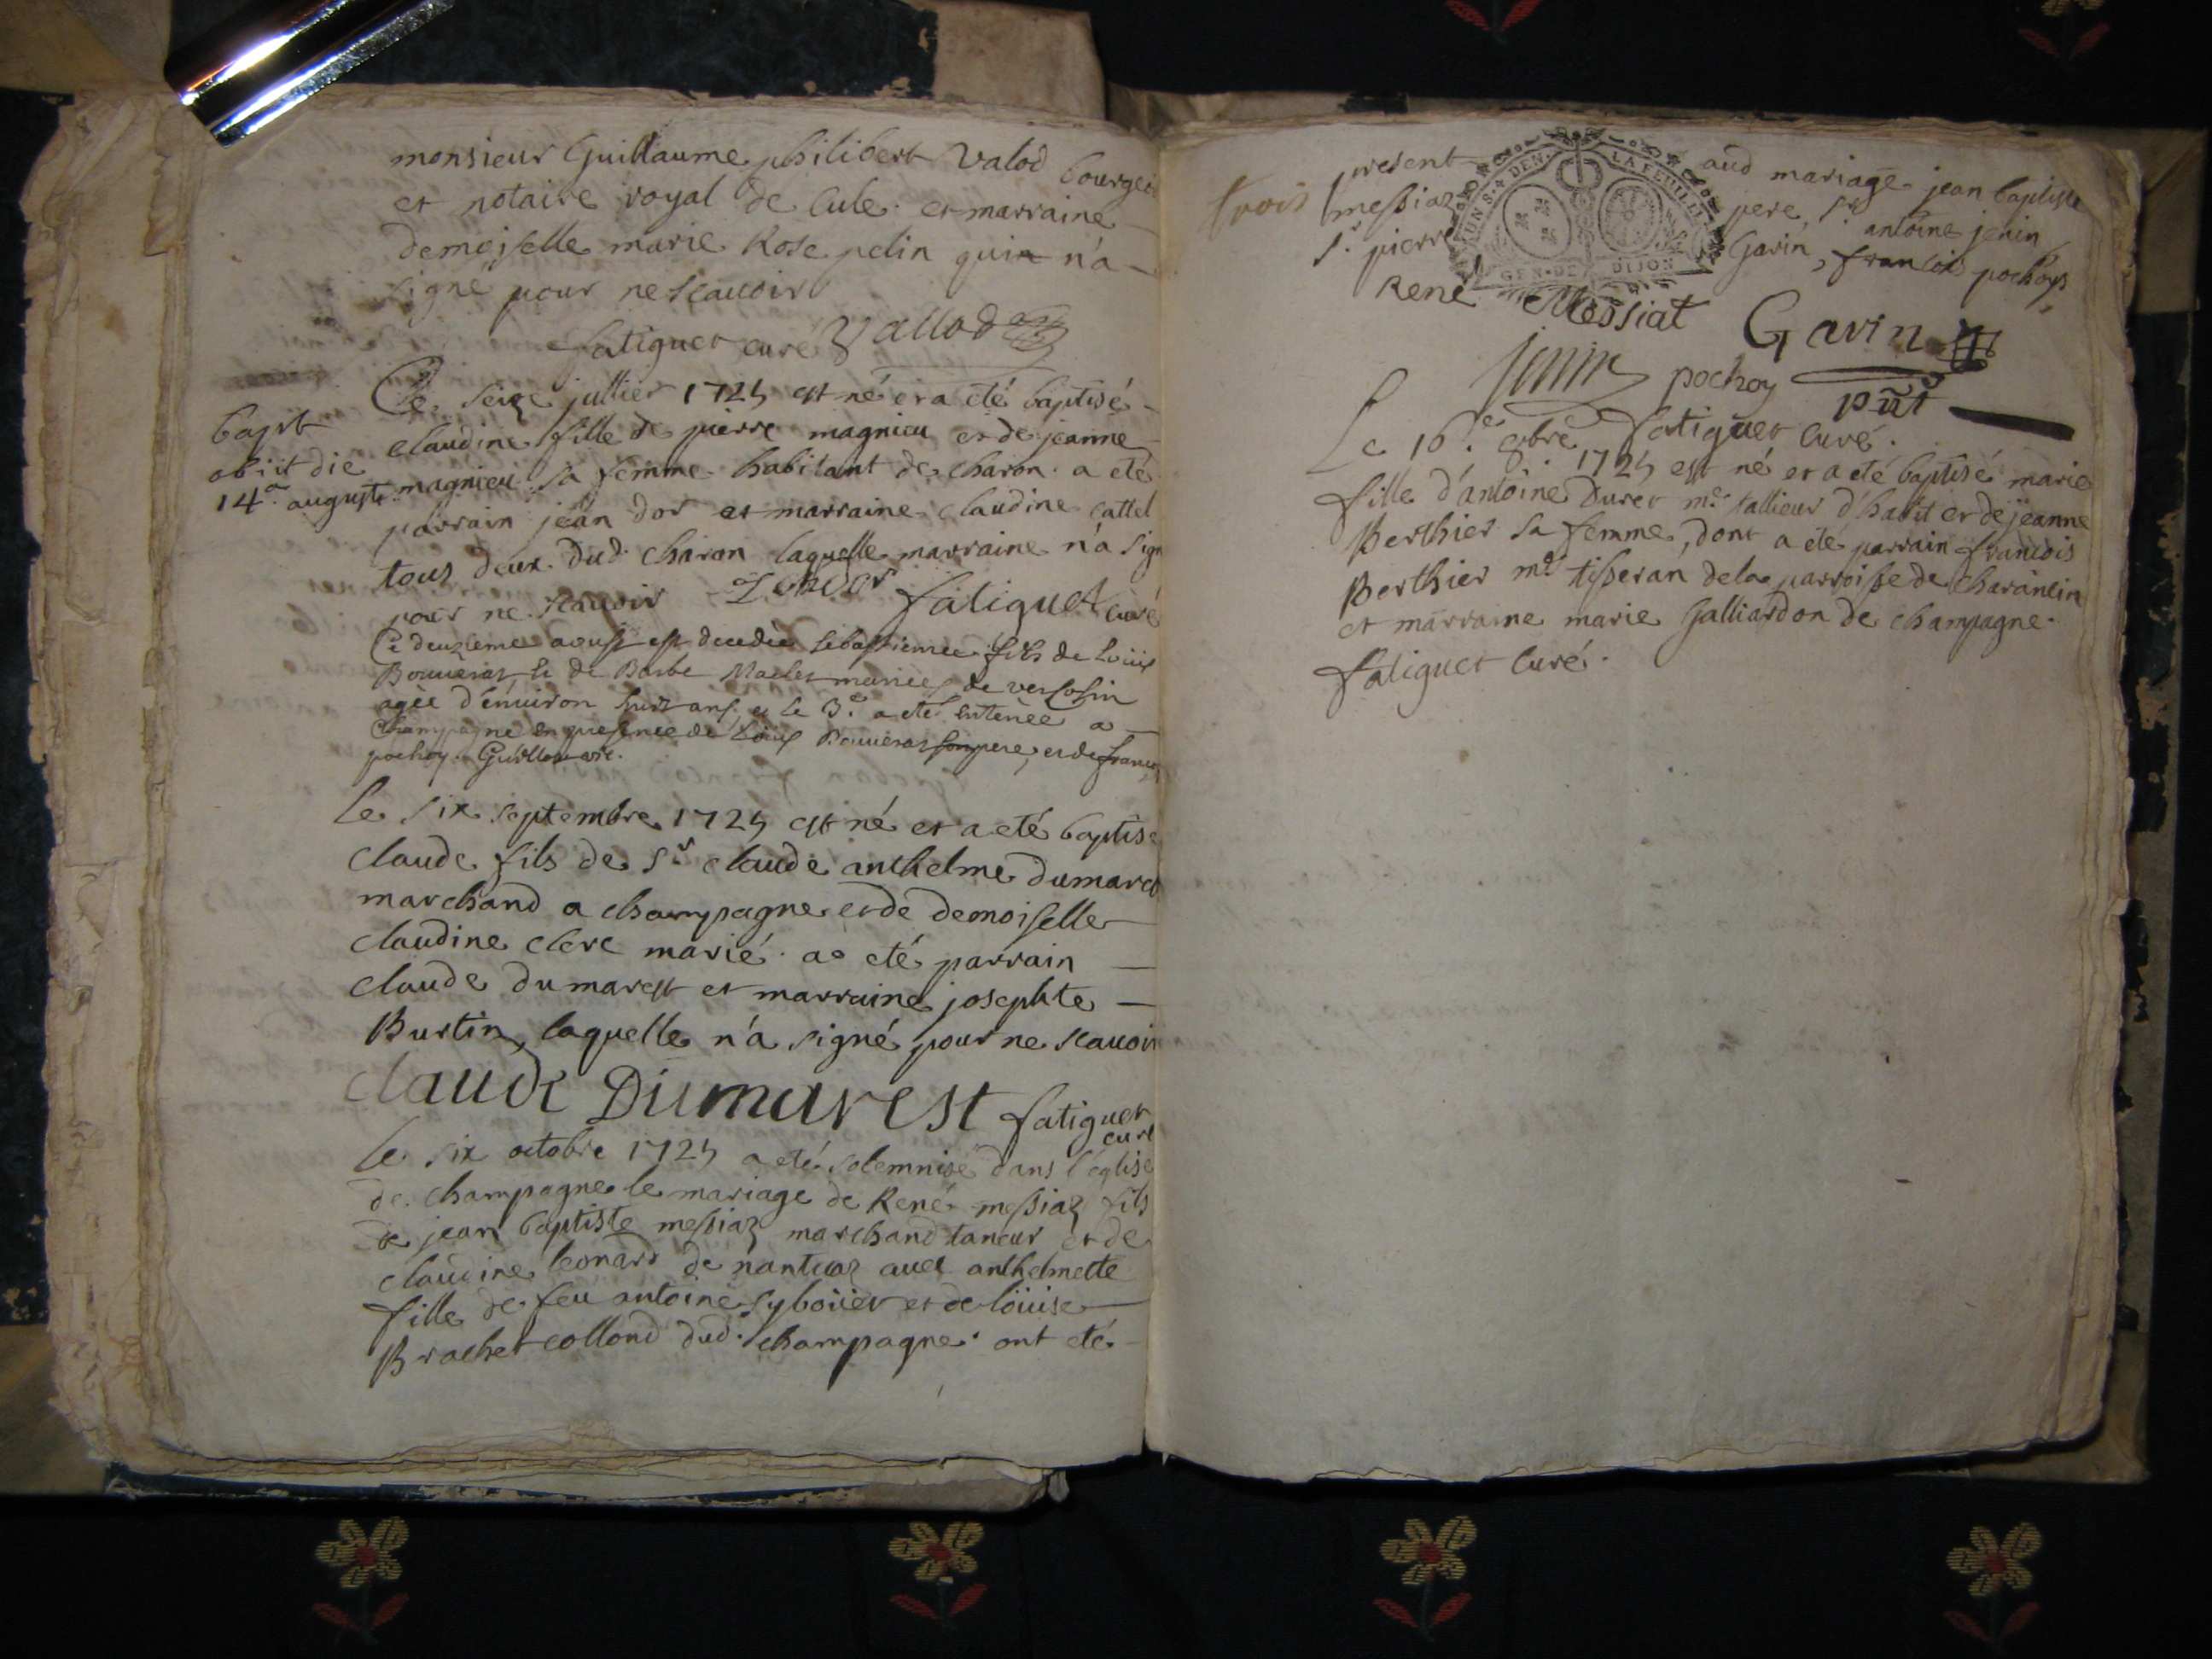 monsieur Guillaume philibert Valod bourgeois
et notaire royal de Cule. et marraine
demoiselle marie Rose pelin quin n'a
signé pour ne scauoir
fatiguet curé Vallod
Ce seize jullier 1725 est né et a eté baptisé
bapt
obiit die
14.a augusti
claudine fille de pierre magnieu et de jeanne
magnieu sa femme habitant de charon. a eté
parrain jean dor et marraine claudine cattel
tous deux dud. charon laquelle marraine n'a sign
pour ne scauoir
fatiguet curé
Ce deuzieme aoust est decedée sebastienne fils de Loüis
Bouueras et de Barbe mariés de
agée d'enuiron huit ans, et le 3.e a eté enterée a
Champagne en presence de Loüis Bouueras son pere, et de francois
pochoy. Guillot vic.
Le six septembre 1725 est né et a eté baptisé
claude fils de Sr claude anthelme dumarest
marchand a champagne et de demoiselle
claudine clerc marié. a eté parrain
claude dumarest et marraine josephte
Burtin, laquelle n'a signé pour ne scauoir
claude Dumarest fatiguet
curé
Le six octobre 1725 a eté solemnisé dans l'eglise
de champagne le mariage de René messiaz fils
de jean baptiste messiaz marchand taneur et de
claudine leonard de nantuaz auec anthelmette
fille de feu antoine syboüet et de loüise
Brachet collond dud. champagne. ont eté
trois
present aud mariage jean baptiste
messiaz pere, Sr antoine jenin
Sr pierre Garin, francois pochoys
UN S. 4 DEN. LA FEUILLE
GEN. DE DIJON
René Messiat Garin
jenin pochoy pñt
fatiguet curé.
Le 16.e 8bre 1725 est né et a eté baptisé marie
fille d'antoine Duret me tallieur d'habit et de jeanne
Berthier sa femme, dont a eté parrain francois
Berthier me tisseran de la parroisse de charancin
et marraine marie Galliardon de champagne.
fatiguet curé.